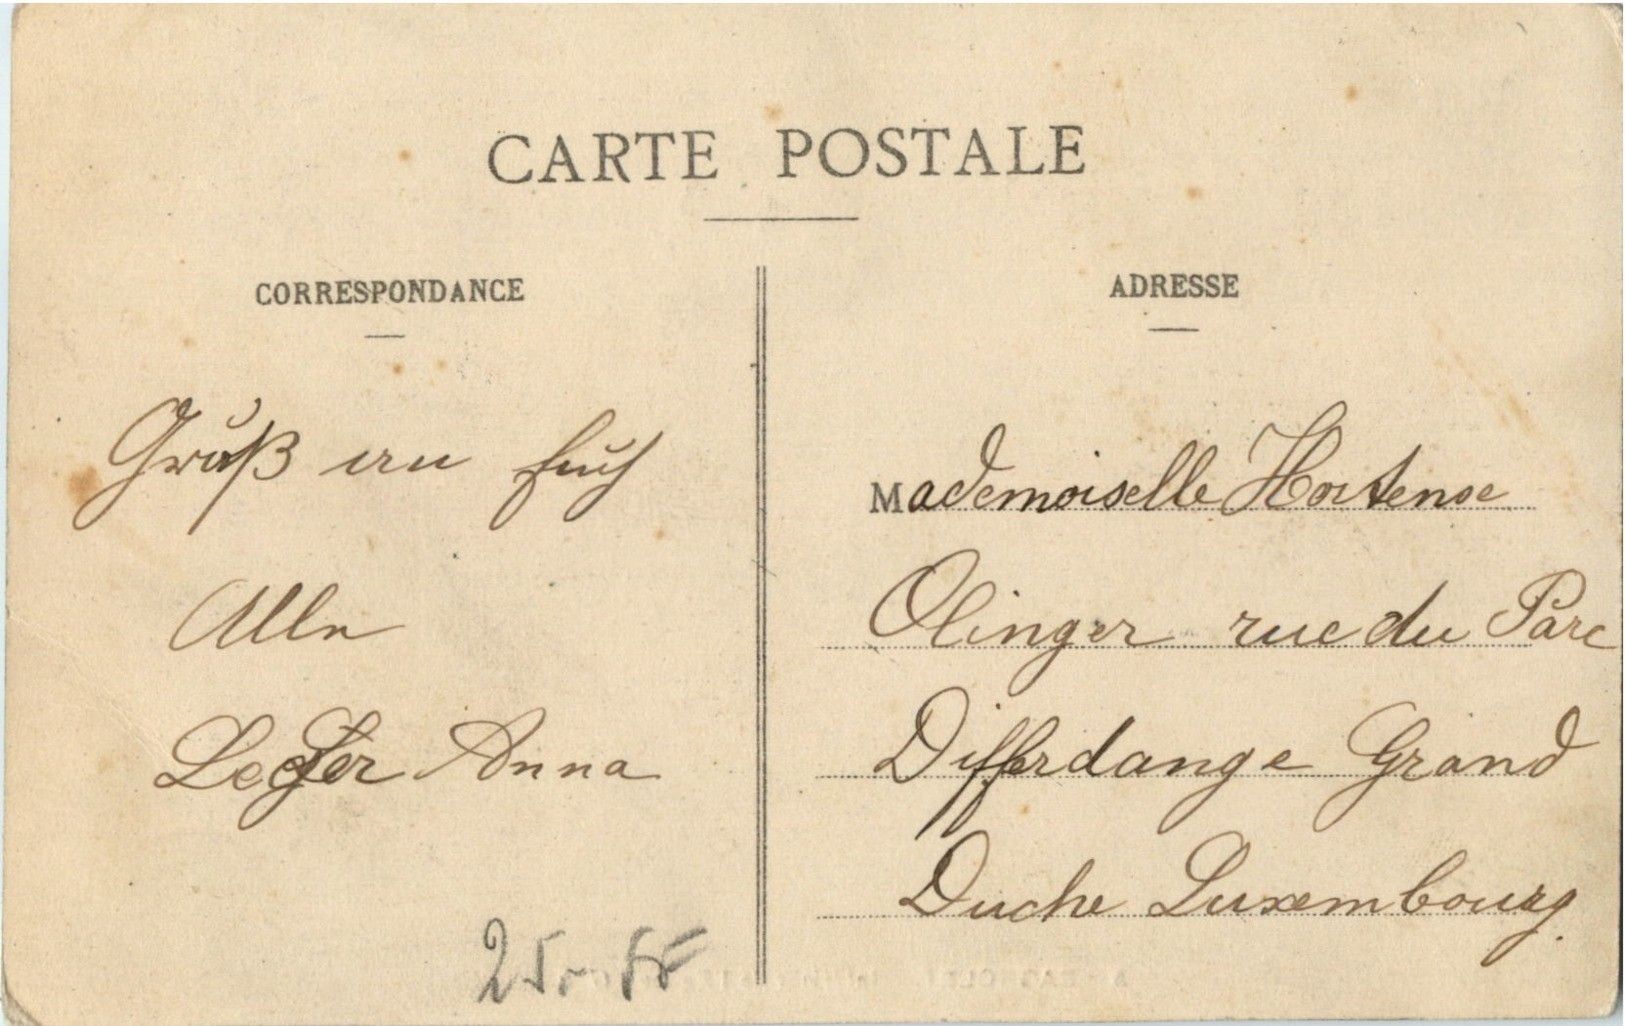 CARTE POSTALE
CORRESPONDANCE
Gruß an Euch
Alle
Anna
ADRESSE
Mademoiselle Hortense
Olinger rue du Parc
Differdange Grand
Duche Luxembourg.